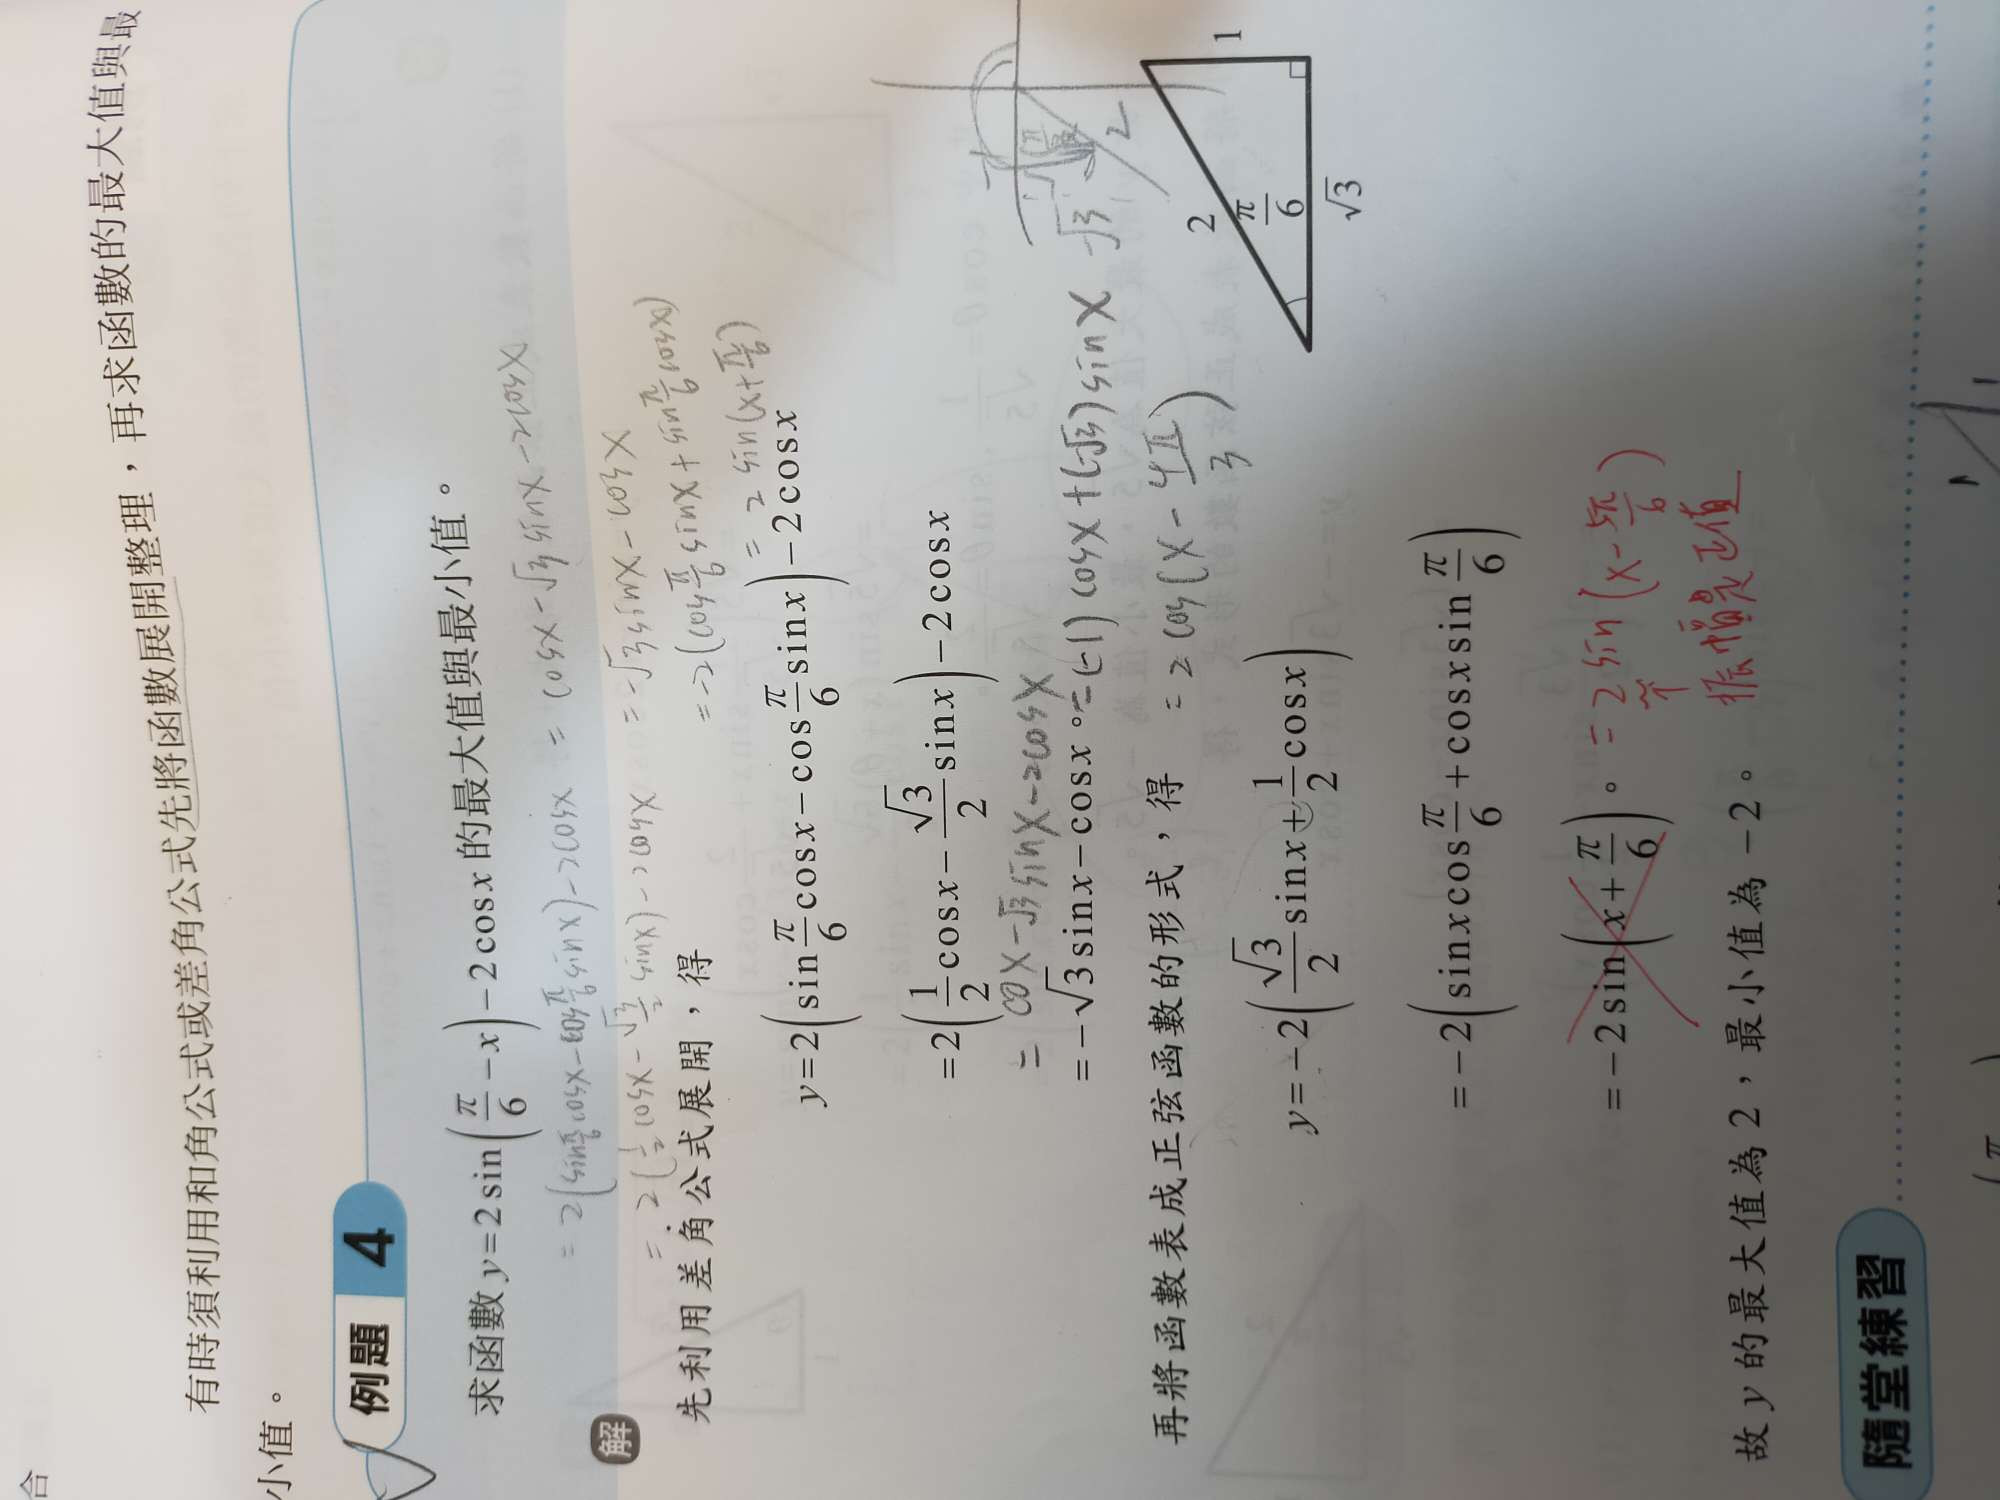 合
有時須利用和角公式或差角公式先將函數展開整理，再求函數的最大值與最
小值。
例題 4
求函數 y=2sin(π/6−x)−2cosx 的最大值與最小值。
=2(sinπ/6cosx−cosπ/6sinx)−2cosx = cosx−√3sinx−2cosx
=2(1/2cosx−√3/2sinx)−2cosx =−√3sinx−cosx
=−2(cosπ/6sinx+sinπ/6cosx)
解
先利用差角公式展開，得
= 2sin(x+π/6)
y=2(sinπ/6cosx−cosπ/6sinx)−2cosx
=2(1/2cosx−√3/2sinx)−2cosx
= cosx−√3sinx−2cosx
=−√3sinx−cosx。 =(−1)cosx+(−√3)sinx
再將函數表成正弦函數的形式，得
= 2cos(x−4π/3)
−√3 2
2 π/6 1 √3
y=−2(√3/2sinx+1/2cosx)
=−2(sinxcosπ/6+cosxsinπ/6)
=−2sin(x+π/6)。 =2sin(x−5π/6)
振幅是正值
故 y 的最大值為 2，最小值為 −2。
隨堂練習